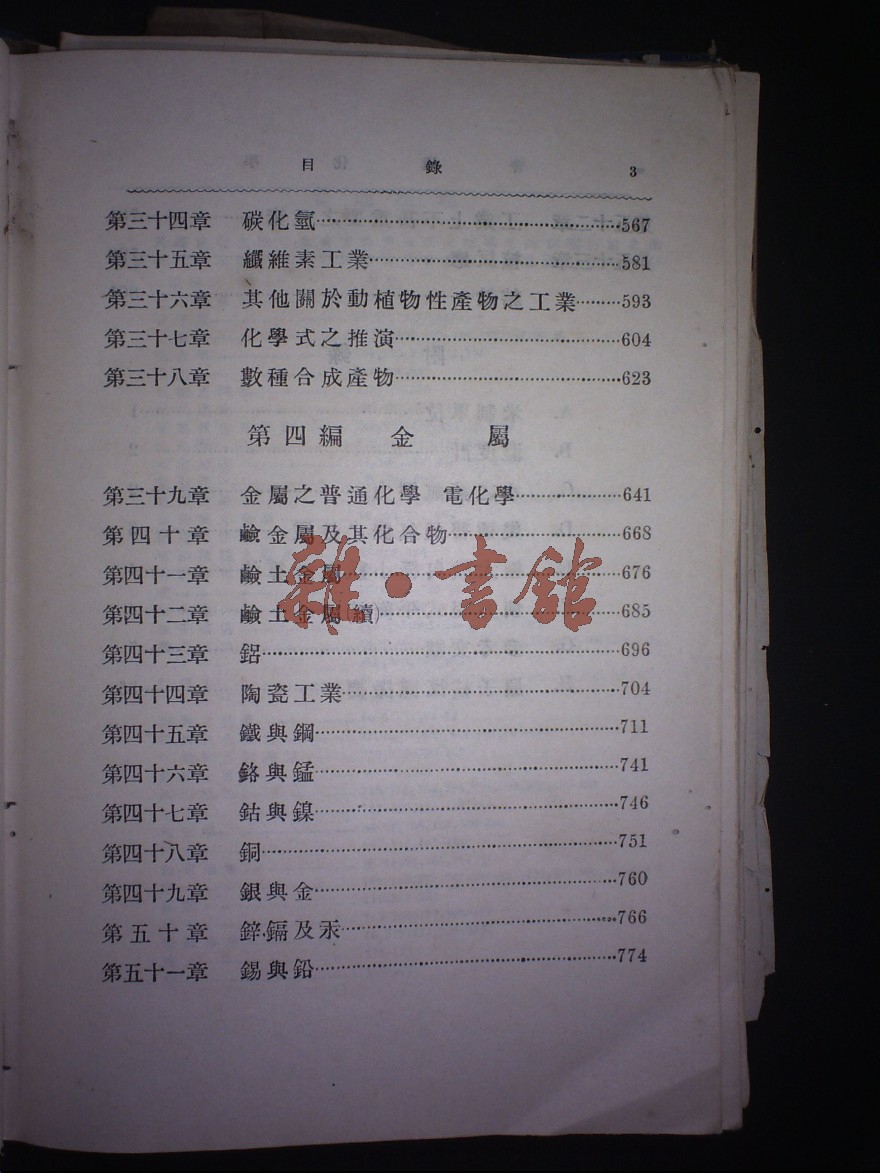 目 錄 3
第三十四章 碳化氫⋯⋯567
第三十五章 纖維素工業⋯⋯581
第三十六章 其他關於動植物性產物之工業⋯⋯593
第三十七章 化學式之推演⋯⋯604
第三十八章 數種合成產物⋯⋯623
第四編 金 屬
第三十九章 金屬之普通化學 電化學⋯⋯641
第四十章 鹼金屬及其化合物⋯⋯668
第四十一章 鹼土金屬⋯⋯676
第四十二章 鹼土金屬(續)⋯⋯685
第四十三章 鋁⋯⋯696
第四十四章 陶瓷工業⋯⋯704
第四十五章 鐵與鋼⋯⋯711
第四十六章 鉻與錳⋯⋯741
第四十七章 鈷與鎳⋯⋯746
第四十八章 銅⋯⋯751
第四十九章 銀與金⋯⋯760
第五十章 鋅鎘及汞⋯⋯766
第五十一章 錫與鉛⋯⋯774
雜·書館